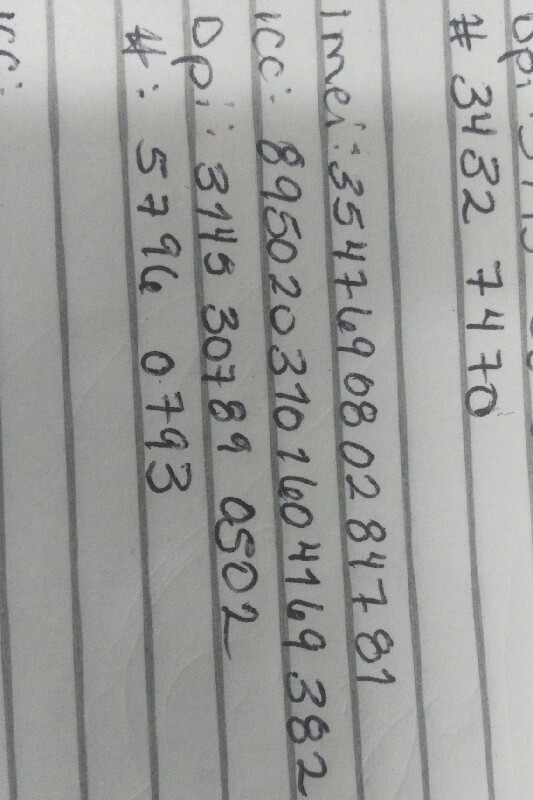 # 3432 7470
Imei: 354769080284781
ICC: 8950203101604169382
Dpi: 3145 30789 0502
#: 5796 0793
ICC: